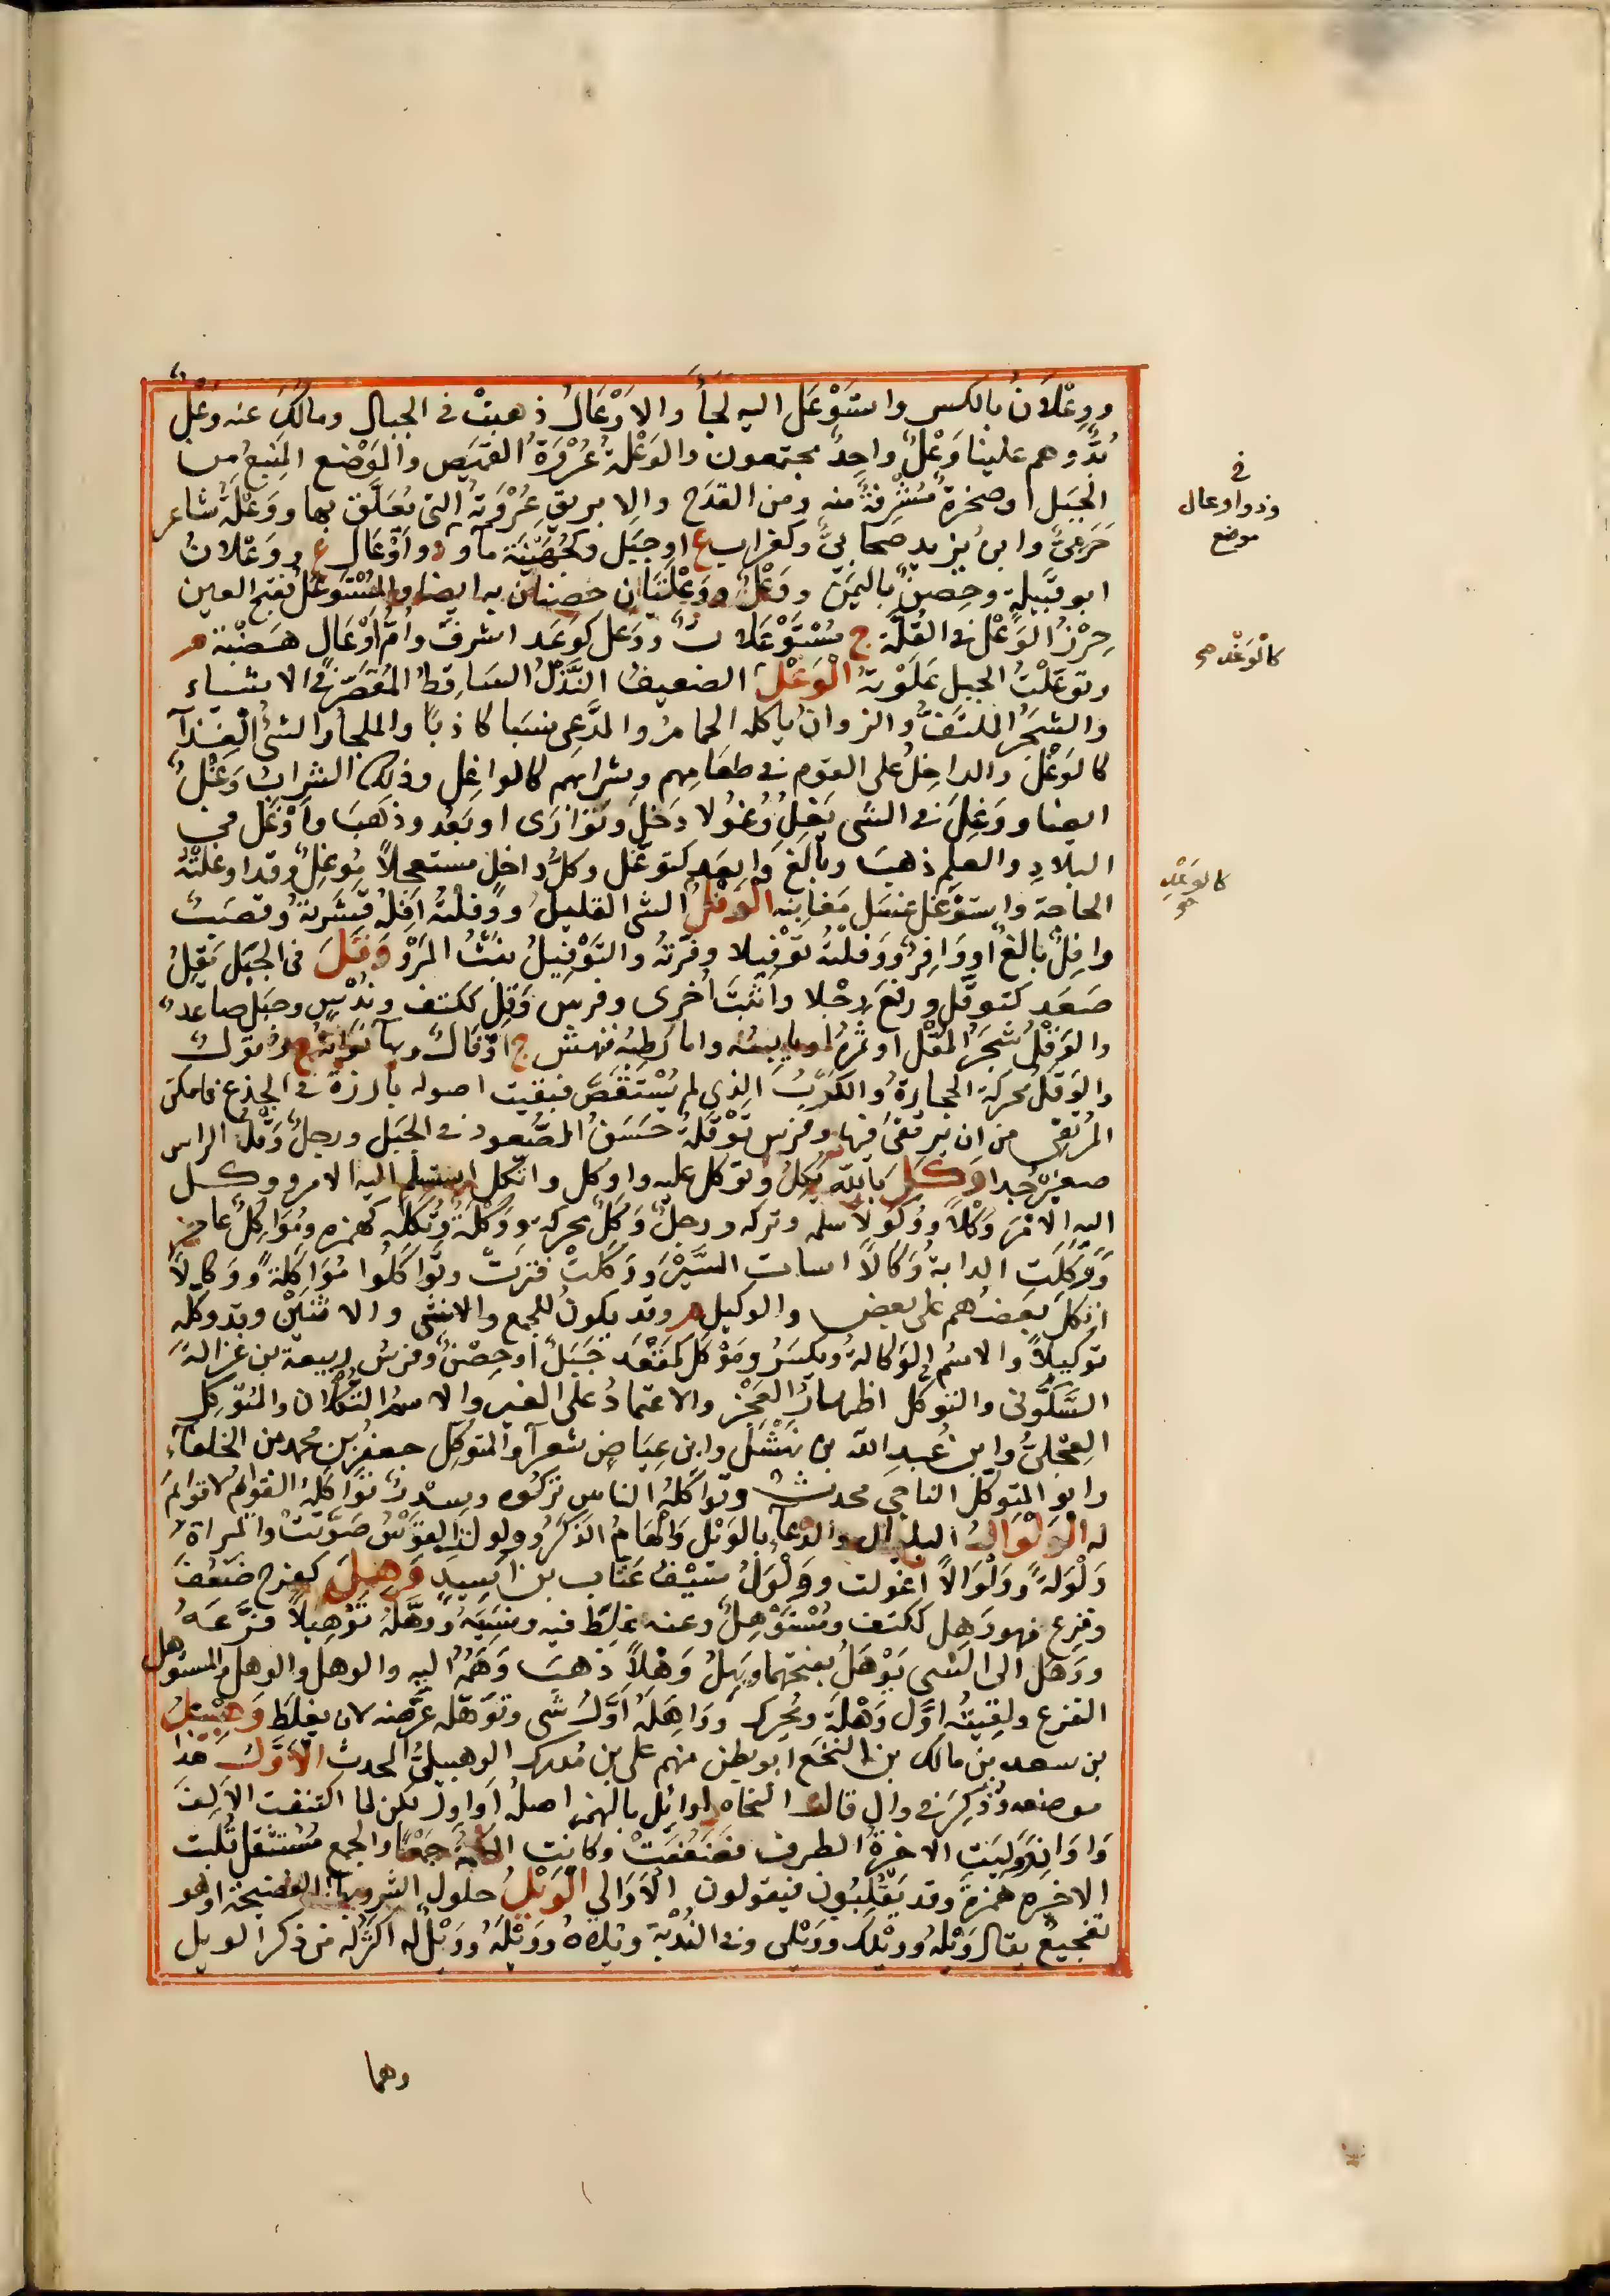 ووِعْلَانُ بالكسر واسْتَوْعَل اليه لجأ والاَوْعَالُ ذهبتْ في الجبال ومالكَ عنه وَعْلٌ
بُدٌّ وهم علينا وَعْلٌ واحِدٌ مجتمعون والوَعْلَةُ عُرْوَةُ القميص والمَوْضِع المَنِيعُ من
الجَبَل او صخرةٌ مُشْرِفَةٌ منه ومن القدَح والابريق عُرْوَتهُ التي يُعَلَّق بها ووَعْلَةُ شاعر
جَرمِيٌّ وابن يزيد صحابيٌّ وكغراب ع او جبَل وكجُهَيْنَة ماء وذو اَوْعَال ع ووَعْلانُ
ابو قَبيلةٍ وحِصنٌ باليَمَن ووَعْلٌ ووَعْلَتَان حصنان به ايضا والمُسْتَوْعَلُ بفتح العين
حِرْزُ الوَعْل في القُلَّة ج مُسْتَوْعَلات ووَعل كوَعَد اشرفَ واُمّ اَوْعَال هَضْبَة م
وتَوعَّلْتُ الجبل عَلَوْتهُ الْوَغْل الضعيف النَّذْلُ السَاقِطُ المُقَصِّرُ في الاشياء
والشجَرُ الملتَفُّ والزوانُ ياكله الحمامُ والمدَّعِى نسَبا كاذبًا والملجأ والسّيّئُ الغِذاء
كالوَغْل والداخِلُ على القوم في طعامِهم وشرابهم كالواغل وذلك الشراب وَغْلٌ
ايضا ووَغِلَ في الشي يَغِلُ وُغُولا دَخَل وتَوَارَى او بَعُد وذهَب واَوْغَل في
البلادِ والعلمِ ذهبَ وبالغَ واَبعد كتوغّل وكلُّ داخل مستعجلاً مُوغِلٌ وقد اوغلتْهُ
الحاجة واستَوْغَل غسَل مَغابِنه الْوَفْلُ الشي القليلُ ووَفلْتُه اَفِلهُ قشَرتهُ وقصَبٌ
وافِلٌ بالغٌ او وَافِرٌ ووَفلْتُه تَوْفِيلا وفّرْتهُ والتَّوْفِيلُ نبْتُ المَرْو وَقَلَ في الجبَل يَقِلُ
صَعَد كتوقّل ورفع رِجْلا واَثبَتَ اُخرى وفرس وَقِل ككتف ونُدُسٍ وجبَل صاعد
والوَقْلُ شجَرُ المُقْلِ او ثمرُه او يابِسُه واما رَطبُه فبهش ج اَوْقَالٌ وبهاء نَواتُه ج وُقولٌ
والوَقَلُ محركة الحجارةُ والكَرَبُ الذي لم يُسْتَقْصَ فبقيت اصوله بارزة في الجذع فامكن
المُرتَقِى من ان يرتقىَ فيها وفرَس تَوْقَلةٌ حَسَنُ الصُّعود في الجبَل ورجلٌ وَقْلُ الراس
صغيرُه جدا وَكَلَ بالله يَكِلُ وتوكل عليه واوكل واتّكل استسلم اليه الامر ووكل
اليه الامْرَ وَكْلاً ووُكُولاً سلّمه وتركه ورجلٌ وَكَلٌ محركة ووُكَلَةٌ وتُكَلَة كهمزة ومُوَاكِلٌ عاجز
ووَكَلَتِ الدابة وَكالاً اسات السَّيْرَ ووَكَلَتْ فَتَرَتْ وتَوَاكَلُوا مُوَاكَلَةً ووِكالاً
اتّكل بعضُهم على بعض والوكيل م وقد يكونُ للجمع والانثى والاثنيْن وقد وكّله
توكيلاً والاسْمُ الوَكالةُ ويكسَرُ ومَوْكَل كمَقْعَد جَبَلٌ او حِصْنٌ وفرسُ ربيعة بن غزالة
السَّكُونى والتوكل اظهارُ العَجْز والاعتمادُ على الغير والاسمُ التُّكْلان والمُتَوكّل
العِجْليُّ وابن عُبدِ الله بن نَهْشَل وابن عِيَاض شعرآء والمتوكل جعفرُ بن محمد من الخلفاء
وابو المتوكل الناجي محدث وتواكَلَهُ الناس تركُوه
له الوَلْوَالُ البلبال والدعآء بالوَيْل والهَامُ الذكَرُ وولولَتِ القوْسُ صَوَّتتْ والمراةُ
وَلْوَلةً ووَلْوَالاً اعولت ووَلْوَلُ سَيْفُ عَتَّاب بن اَسيد وَهِلَ كفرح ضَعُفَ
وفزِع فهو وَهِل ككتف ومُسْتَوْهِلٌ وعنه غلِطَ فيه ونسِيَهُ ووهَّلَهُ تَوْهِيلاً فزَّعَهُ
ووَهَل الى الشي يَوْهَلُ بفتحهما ويَهِلُ وَهْلاً ذهبَ وَهَمُهُ اليه والوهل والوهل والمستوهل
الفزع ولقِيتُه اوّل وَهْلَة ويُحرك ووَاهِلَة اَوَّلَ شَى وتوَهّلَه عَرَّضه لان يغلَط وَهْبِيلُ
بن سعد بن مالك بن النَّخَع ابو بطن منهم علي بن مُدرك الوهبيليُّ المحدث الأوَّلُ هذا
موضعه وذُكِرَ في وال قالت النحاة اوائل بالهمز اصلهُ اَوَاوِل لكن لما اكتنفت الالِفَ
وَاوَانِ ووَلِيَتِ الاخرةُ الطرف فضعُفَتْ وكانت الكلمة جَمْعًا والجمع مُسْتثقل قُلبت
الاخره همزة وقد يَقْلِبُون فيقولون الاَوَالي الْوَيْلُ حلول الشر وبهاء الفضيحة او هو
تفجيعٌ يقال وَيْلَهُ ووَيْلَك ووَيْلى وفى النُّدْبَة وَيْلاهُ ووَيْلَهُ ووَيْلَ له اَكثرَ له من ذكر الويل
في
وذو اوعال
موضع
كالوَغْد صح
كالوَغْلِ
صح
وهما